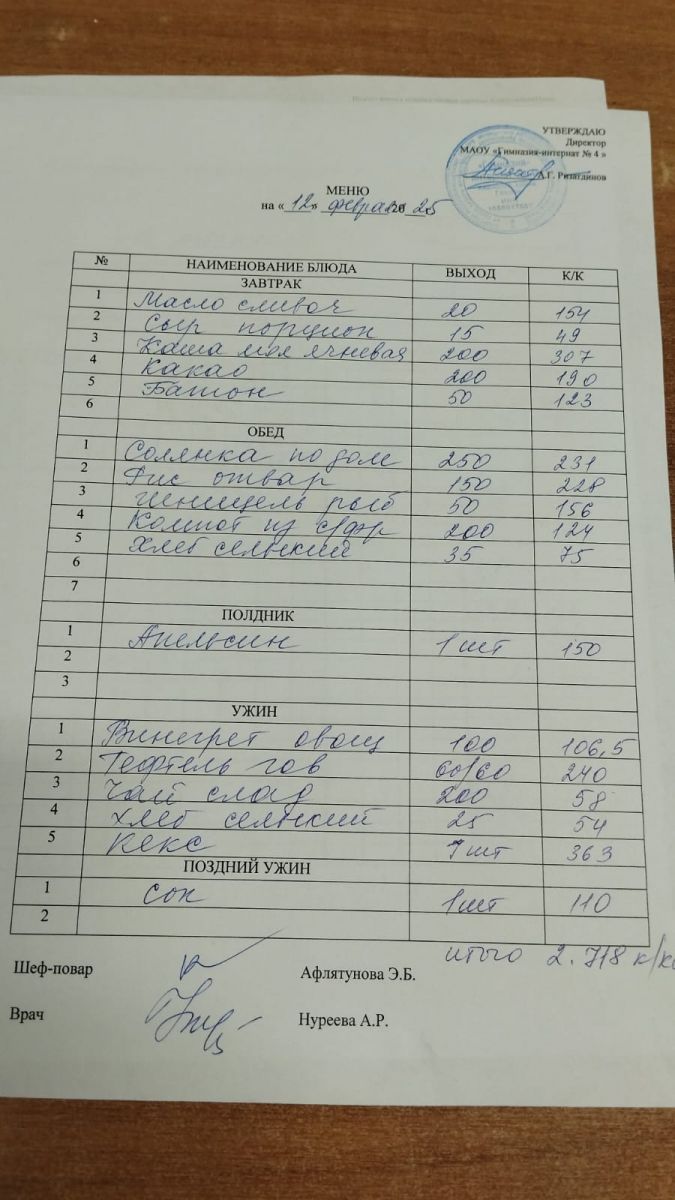 УТВЕРЖДАЮ
Директор
МАОУ «Гимназия-интернат № 4 »
А.Г. Ризатдинов
МЕНЮ
на « 12 » февраля 20 25
№ НАИМЕНОВАНИЕ БЛЮДА ВЫХОД К/К
ЗАВТРАК
1 Масло сливоч 20 154
2 Сыр порцион 15 49
3 Каша мол ячневая 200 307
4 Какао 200 190
5 Батон 50 123
6
ОБЕД
1 Солянка по дом 250 231
2 Рис отвар 150 228
3 Шницель рыб 50 156
4 Компот из с/фр 200 124
5 Хлеб сельский 35 75
6
7
ПОЛДНИК
1 Апельсин 1 шт 150
2
3
УЖИН
1 Винегрет овощ 100 106,5
2 Тефтель гов 60/60 240
3 Чай слад 200 58
4 Хлеб сельский 25 54
5 Кекс 1 шт 363
ПОЗДНИЙ УЖИН
1 Сок 1 шт 110
2
итого 2.718 к/к
Шеф-повар Афлятунова Э.Б.
Врач Нуреева А.Р.